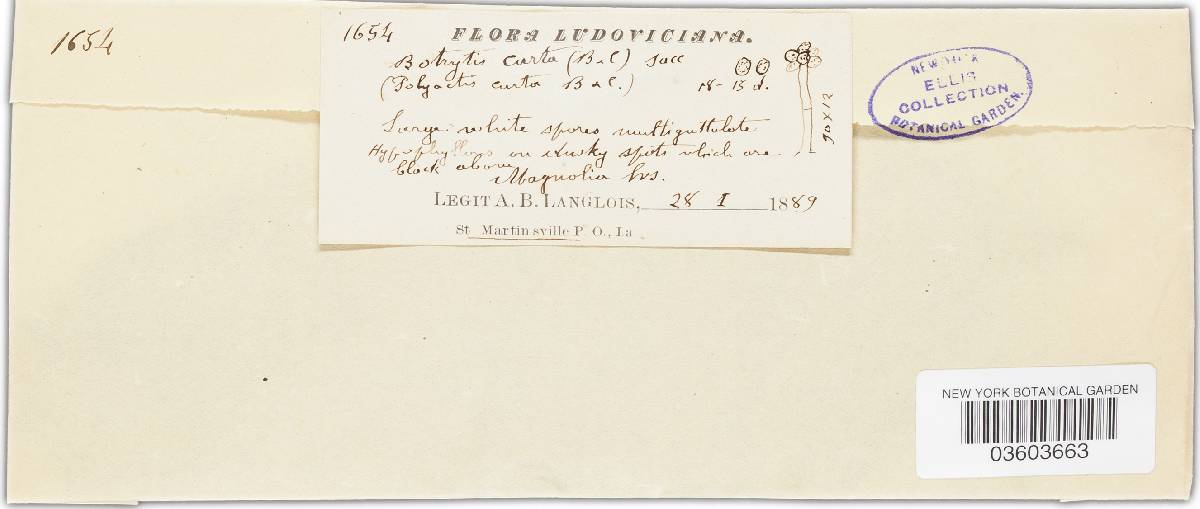 1654
1654
FLORA LUDOVICIANA.
Botrytis curta (B & C) Sacc
(Polyactis curta B & C.) 18-15 d.
Large white spores multiguttulate
Hypophyllous on dusky spots which are
black above
Magnolia lvs.
90 x 12
LEGIT A. B. LANGLOIS, 28 I 1889
St Martinsville P. O., La
NEW YORK
ELLIS
COLLECTION
BOTANICAL GARDEN.
NEW YORK BOTANICAL GARDEN
03603663